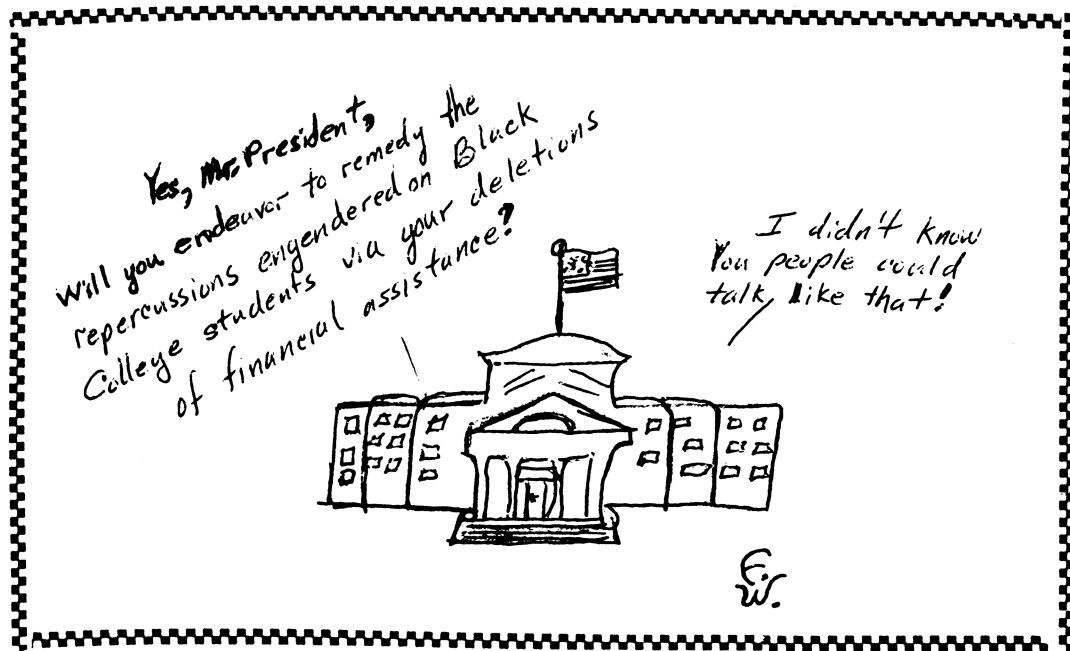 Yes, Mr. President,
Will you endeavor to remedy the
repercussions engendered on Black
College students via your deletions
of financial assistance?
I didn't know
You people could
talk like that!
E.
W.